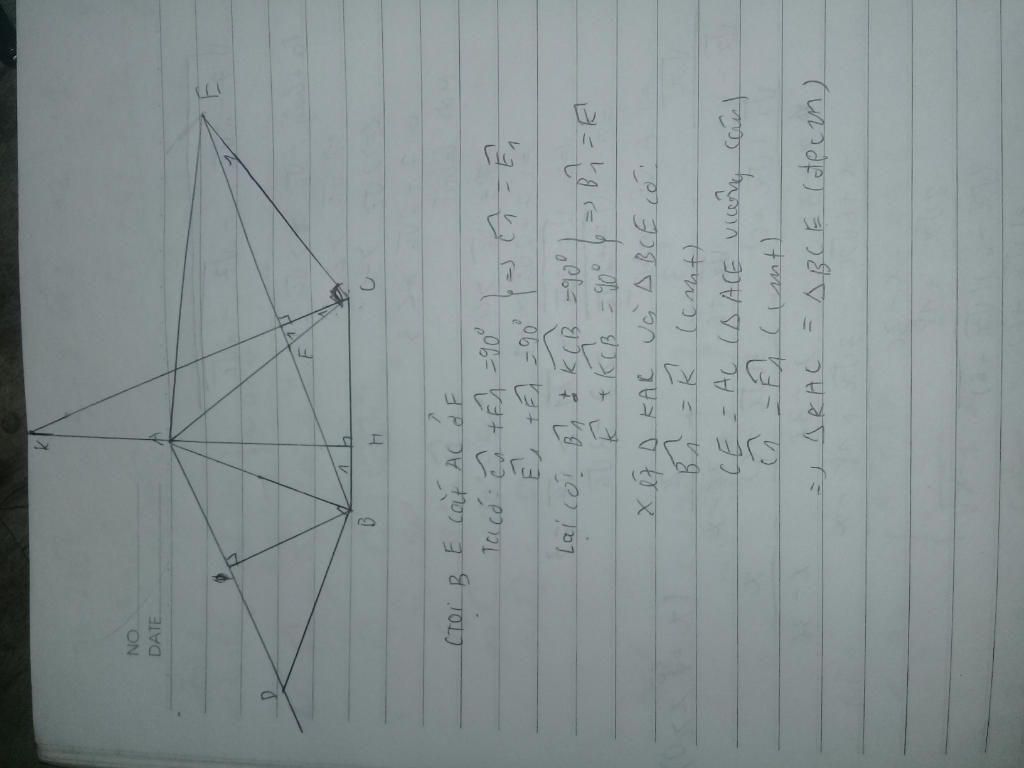 NO.
DATE
K
A
E
D
F
1
1
1
B
H
C
Gọi BE cắt AC ở F
Ta có: Ĉ1 + F̂1 = 90°
Ê1 + F̂1 = 90° } => Ĉ1 = Ê1
Lại có: B̂1 + KCB = 90°
K̂ + KCB = 90° } => B̂1 = K̂
Xét Δ KAC và Δ BCE có:
B̂1 = K̂ (cmt)
CE = AC (Δ ACE vuông cân)
Ĉ1 = Ê1 (cmt)
=> Δ KAC = Δ BCE (đpcm)